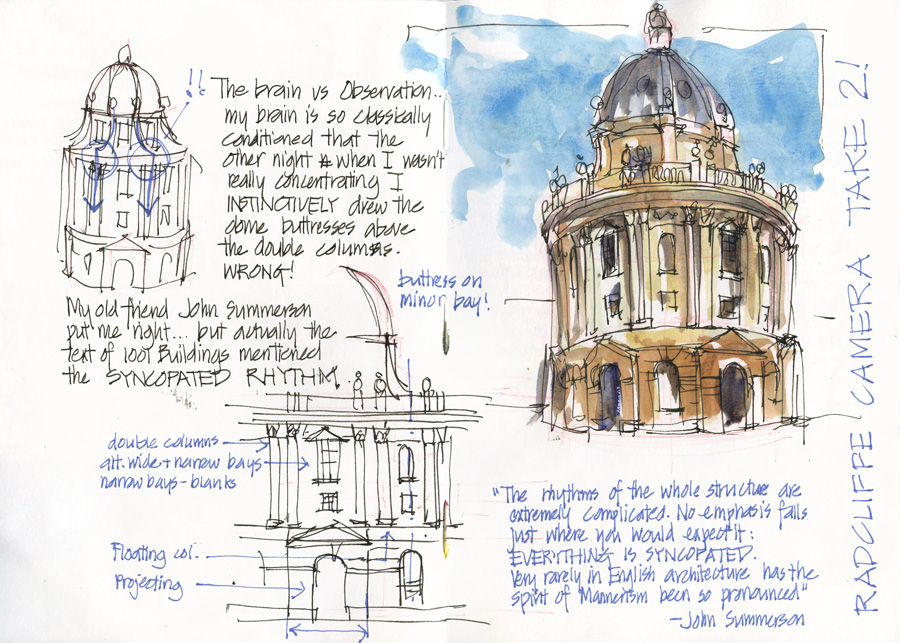 !!
The brain vs Observation..
my brain is so classically
conditioned that the
other night when I wasn't
really concentrating I
INSTINCTIVELY drew the
dome buttresses above
the double columns.
WRONG!
My old friend John Summerson
put me right... but actually the
text of 1001 Buildings mentioned
the SYNCOPATED RHYTHM.
buttress on
minor bay!
double columns
alt. wide + narrow bays
narrow bays - blanks
Floating col.
Projecting
"The rhythms of the whole structure are
extremely complicated. No emphasis falls
just where you would expect it:
EVERYTHING IS SYNCOPATED.
Very rarely in English architecture has the
spirit of Mannerism been so pronounced"
- John Summerson
RADCLIFFE CAMERA TAKE 2!